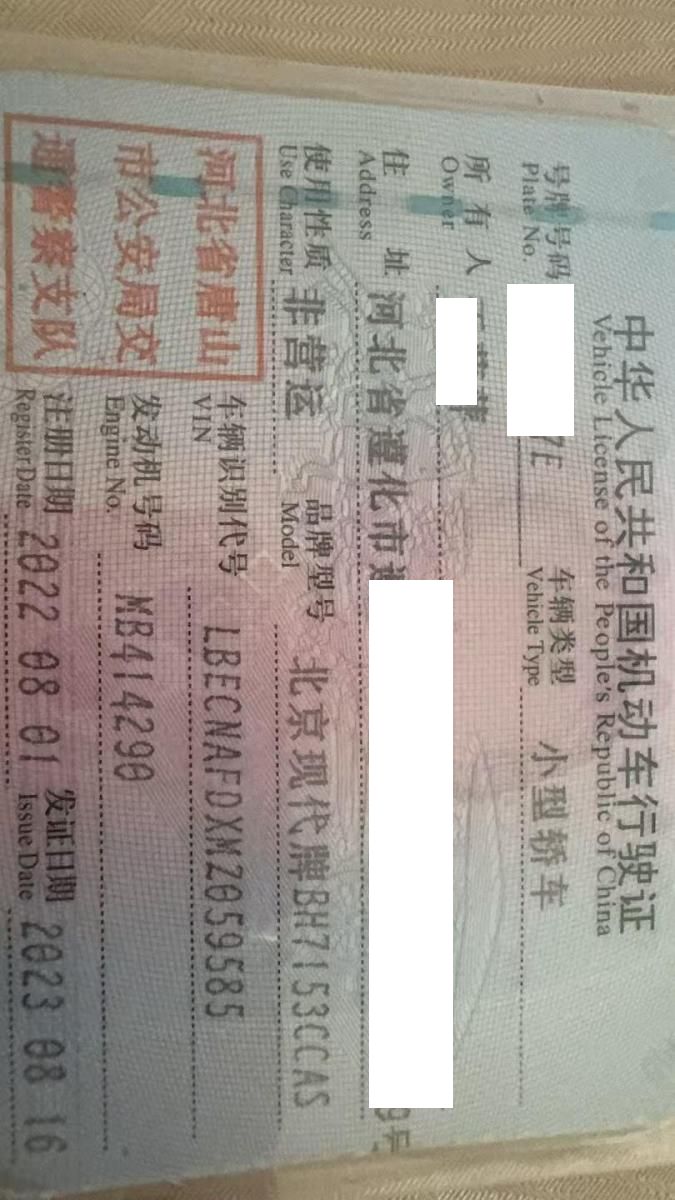 中华人民共和国机动车行驶证
Vehicle License of the People's Republic of China
号牌号码 7E 车辆类型 小型轿车
Plate No. Vehicle Type
所有人
Owner
住址 河北省遵化市 9号
Address
使用性质 非营运 品牌型号 北京现代牌BH7153CCAS
Use Character Model
河北省唐山
市公安局交
通警察支队
车辆识别代号 LBECNAFDXMZ059585
VIN
发动机号码 MB414290
Engine No.
注册日期 2022 08 01 发证日期 2023 08 16
Register Date Issue Date